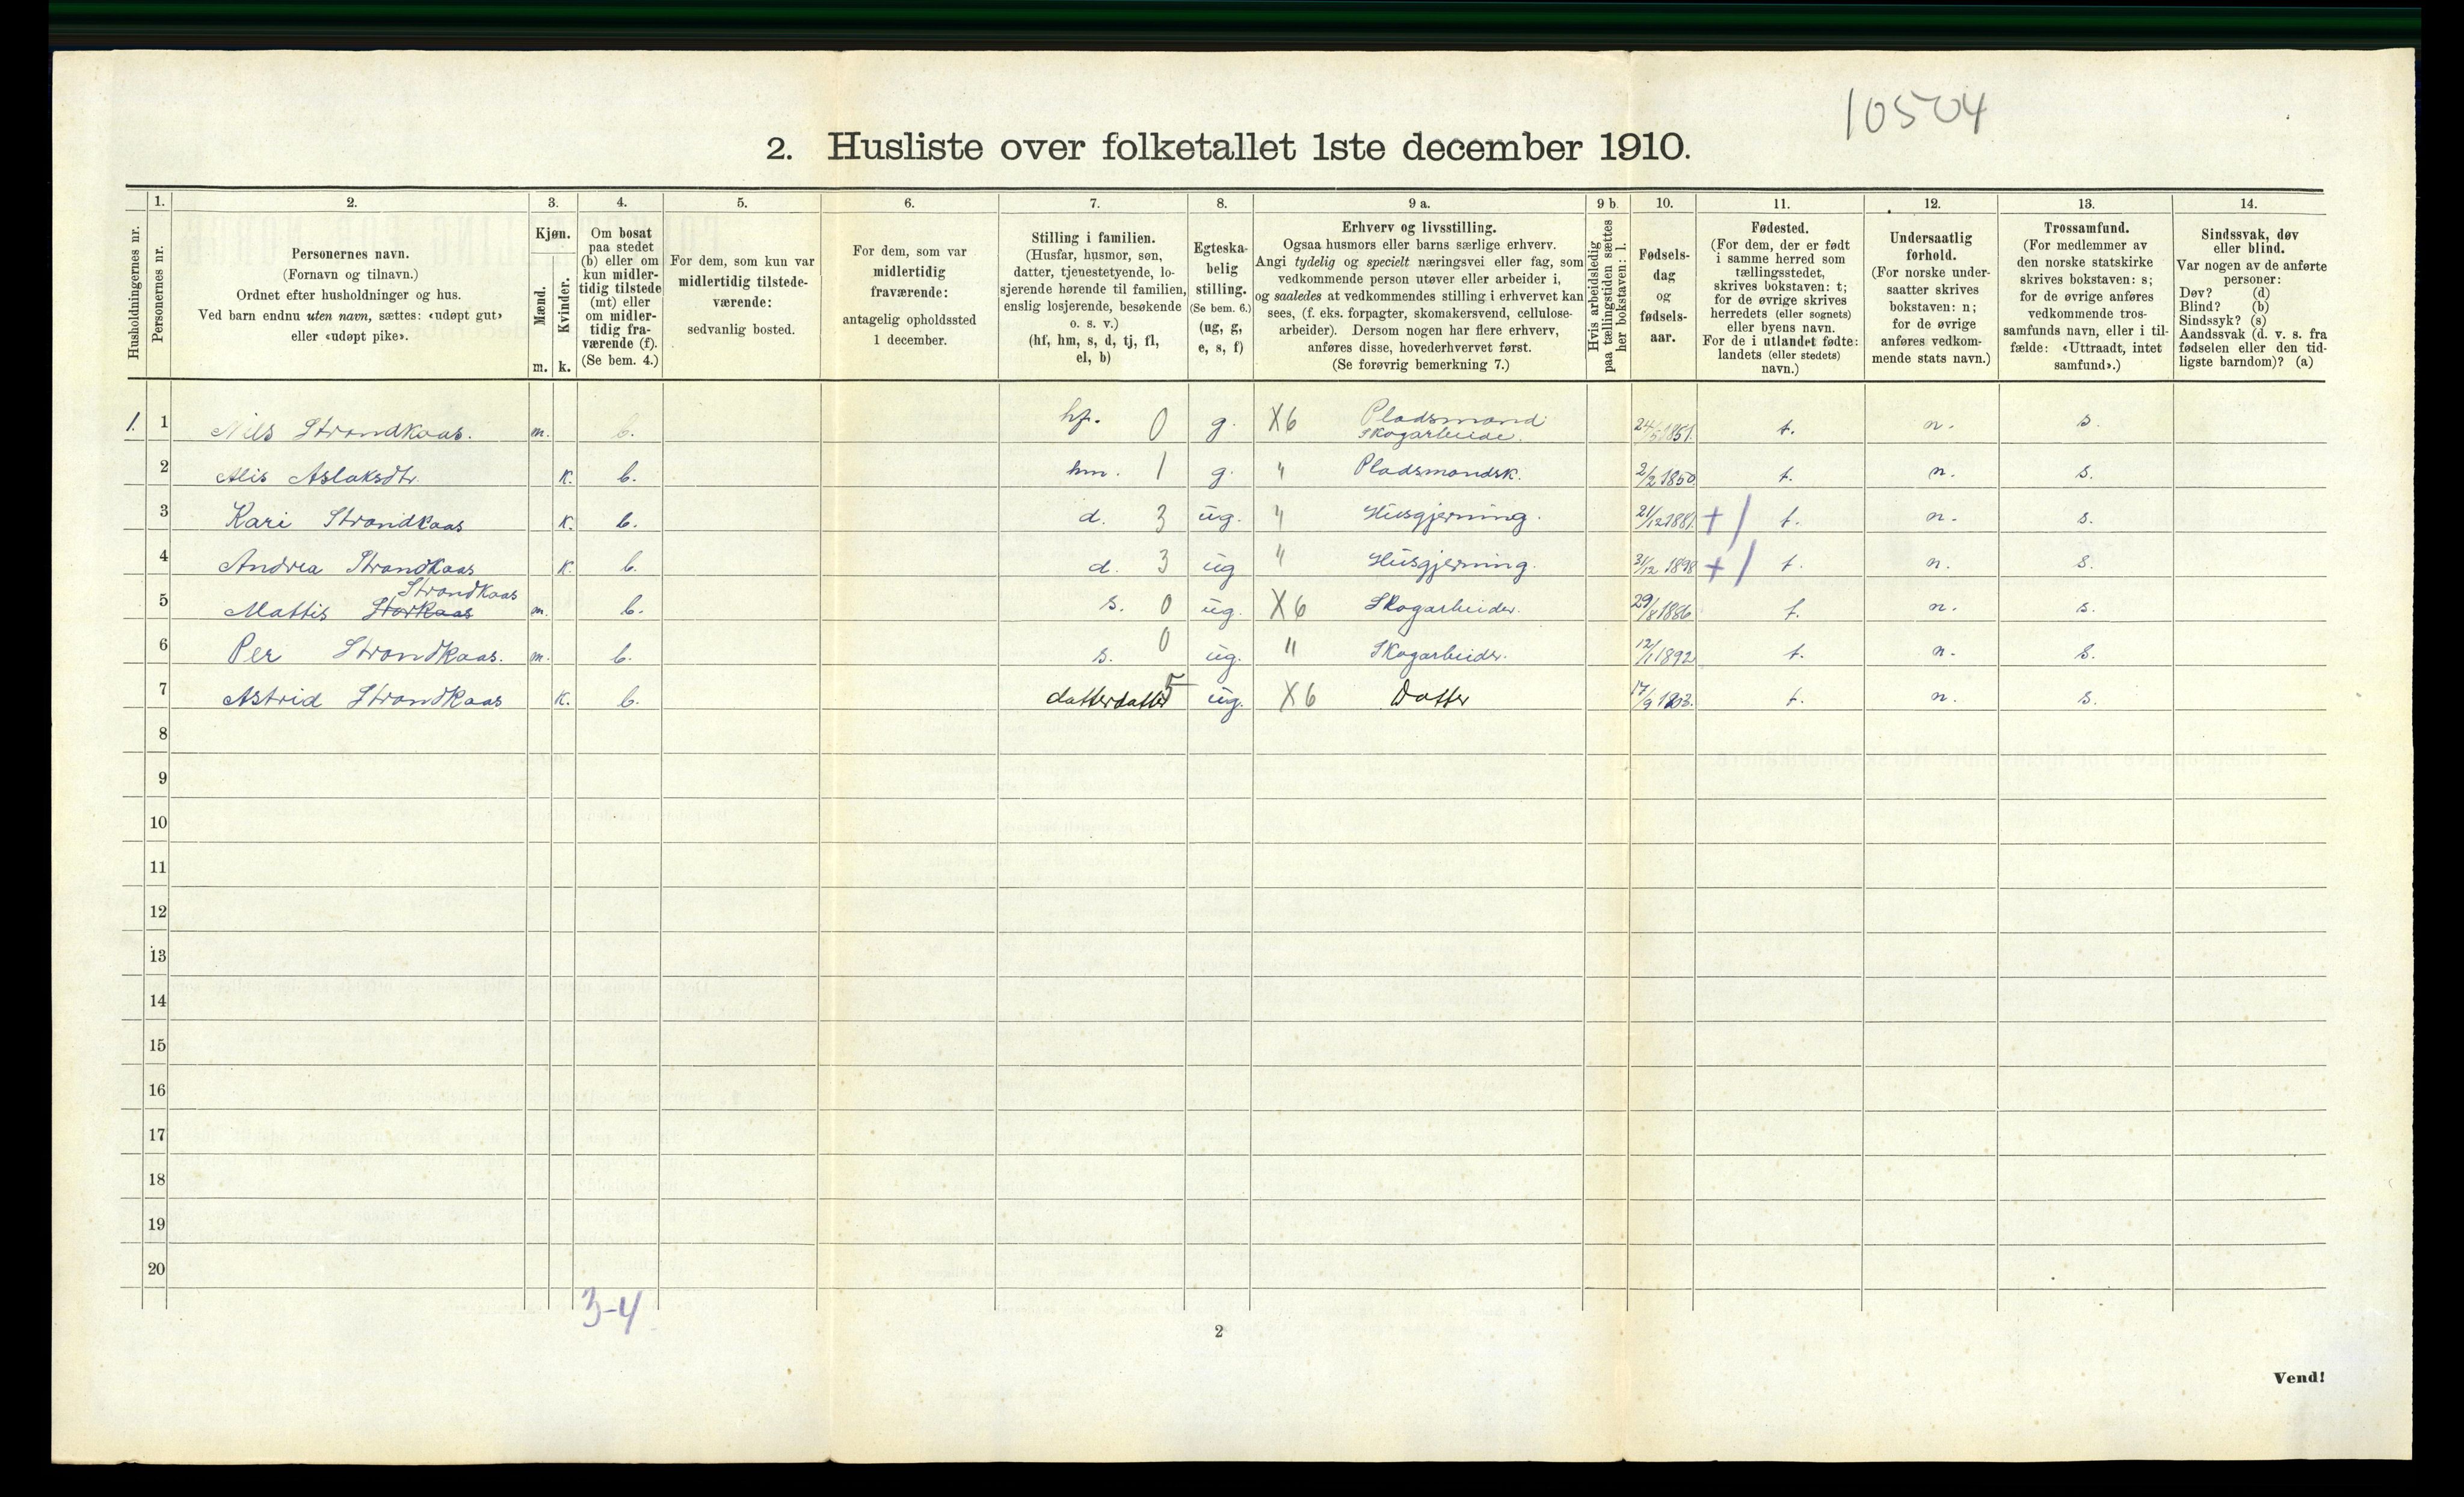 10504
2. Husliste over folketallet 1ste december 1910.
1. 2. 3. 4. 5. 6. 7. 8. 9 a. 9 b. 10. 11. 12. 13. 14.
Husholdningernes nr.
Personernes nr.
Personernes navn.
(Fornavn og tilnavn.)
Ordnet efter husholdninger og hus.
Ved barn endnu uten navn, sættes: «udøpt gut»
eller «udøpt pike».
Kjøn.
Mænd.
Kvinder.
m. k.
Om bosat
paa stedet
(b) eller om
kun midler-
tidig tilstede
(mt) eller
om midler-
tidig fra-
værende (f).
(Se bem. 4.)
For dem, som kun var
midlertidig tilstede-
værende:
sedvanlig bosted.
For dem, som var
midlertidig
fraværende:
antagelig opholdssted
1 december.
Stilling i familien.
(Husfar, husmor, søn,
datter, tjenestetyende, lo-
sjerende hørende til familien,
enslig losjerende, besøkende
o. s. v.)
(hf, hm, s, d, tj, fl,
el, b)
Egteska-
belig
stilling.
(Se bem. 6.)
(ug, g,
e, s, f)
Erhverv og livsstilling.
Ogsaa husmors eller barns særlige erhverv.
Angi tydelig og specielt næringsvei eller fag, som
vedkommende person utøver eller arbeider i,
og saaledes at vedkommendes stilling i erhvervet kan
sees, (f. eks. forpagter, skomakersvend, cellulose-
arbeider). Dersom nogen har flere erhverv,
anføres disse, hovederhvervet først.
(Se forøvrig bemerkning 7.)
Hvis arbeidsledig
paa tællingstiden sættes
her bokstaven: l.
Fødsels-
dag
og
fødsels-
aar.
Fødested.
(For dem, der er født
i samme herred som
tællingsstedet,
skrives bokstaven: t;
for de øvrige skrives
herredets (eller sognets)
eller byens navn.
For de i utlandet fødte:
landets (eller stedets)
navn.)
Undersaatlig
forhold.
(For norske under-
saatter skrives
bokstaven: n;
for de øvrige
anføres vedkom-
mende stats navn.)
Trossamfund.
(For medlemmer av
den norske statskirke
skrives bokstaven: s;
for de øvrige anføres
vedkommende tros-
samfunds navn, eller i til-
fælde: «Uttraadt, intet
samfund».)
Sindssvak, døv
eller blind.
Var nogen av de anførte
personer:
Døv? (d)
Blind? (b)
Sindssyk? (s)
Aandssvak (d. v. s. fra
fødselen eller den tid-
ligste barndom)? (a)
1. 1 Nils Strondkaas. m. b. hf. 0 g. X6 Pladsmand 24/5 1851. t. n. s.
Skogarbeide.
2 Alis Aslaksdtr. k. b. hm. 1 g. " Pladsmandsk. 2/2 1850 t. n. s.
3 Kari Strondkaas k. b. d. 3 ug. " Husgjerning. 21/12 1881. + / t. n. s.
4 Andrea Strandkaas k. b. d. 3 ug " Husgjerning. 3/12 1898 + / t. n. s.
Strondkaas
5 Mattis Storkaas m. b. s. 0 ug. X6 Skogarbeider. 29/8 1886 t. n. s.
6 Per Strondkaas. m. b. s. 0 ug. " Skogarbeider. 12/1 1892 t. n. s.
7 Astrid Strondkaas k. b. datterdatter 5 ug. X6 Datter 17/9 1903. t. n. s.
8
9
10
11
12
13
14
15
16
17
18
19
20
3-4
2
Vend!